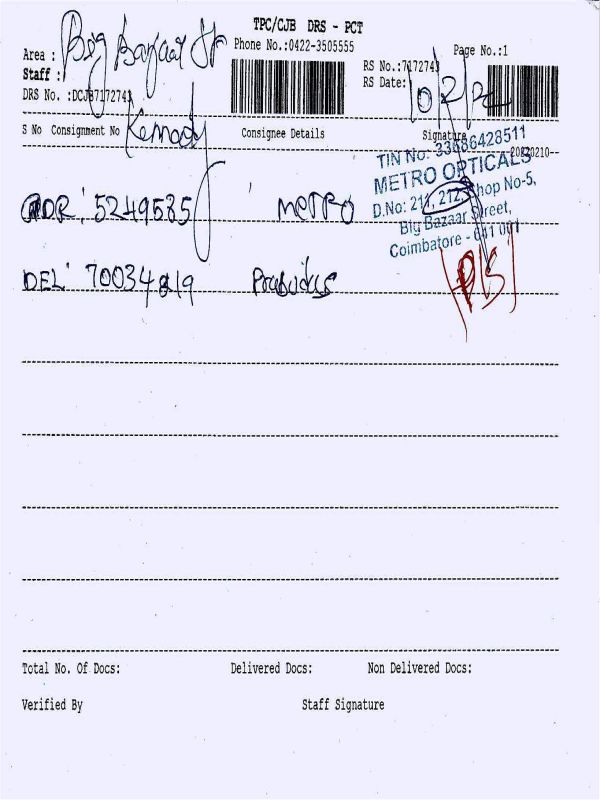 TPC/CJB DRS - PCT
Area : Big Bazaar St
Phone No.:0422-3505555
Page No.:1
Staff : Kennady
RS No.:7172743
DRS No. :DCJB7172743
RS Date: 10/2/
S No Consignment No
Consignee Details
Signature
20220210--
TIN No: 33586428511
METRO OPTICALS
D.No: 211, 212, Shop No-5,
Big Bazaar Street,
Coimbatore - 641 001
5249535 METRO
DEL 70034819
Total No. Of Docs:
Delivered Docs:
Non Delivered Docs:
Verified By
Staff Signature